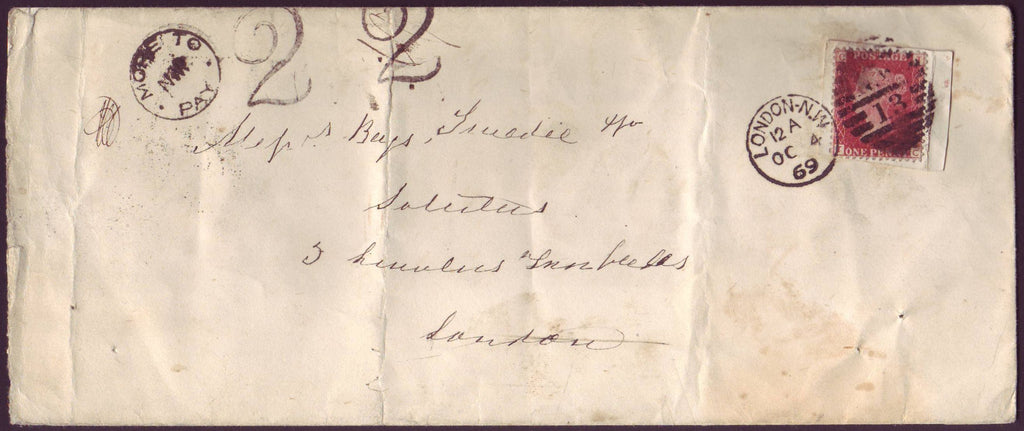 2 2
MORE TO PAY
N.W
POSTAGE
LONDON-N.W
12 A
OC 4
69
13
ONE PENNY
Mess rs Bays, Tweedie &Co
Solicitors
3 Lincolns Inn Fields
London